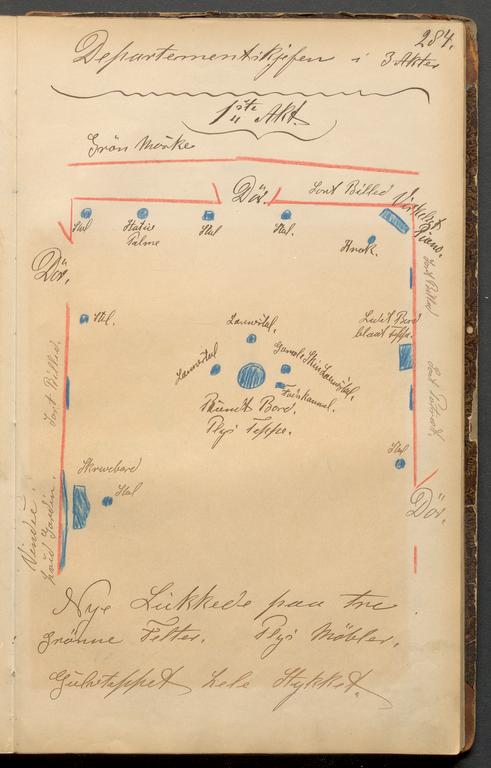 284.
Departementskjefen i 3 Akter
1ste Akt.
Grön Mörke
Dör.
Sort Billed
Virkeligt
Piano.
Stol
Stativ
Palme
Stol
Stol.
Krak.
Dör.
Sort Billed
Stol.
Lænestol.
Lidet Bord
blaat Teppe.
Lænestol
Gamle Skindlænestol.
Rundt Bord.
Plys Teppe.
Sort Billed.
Sort
Stol
Skrivebord
Stol
Dör.
Vindue.
hvid Gardin.
Nye Lukkede paa tre
Grönne Felter. Plys Möbler.
Gulvteppet hele Stykket.